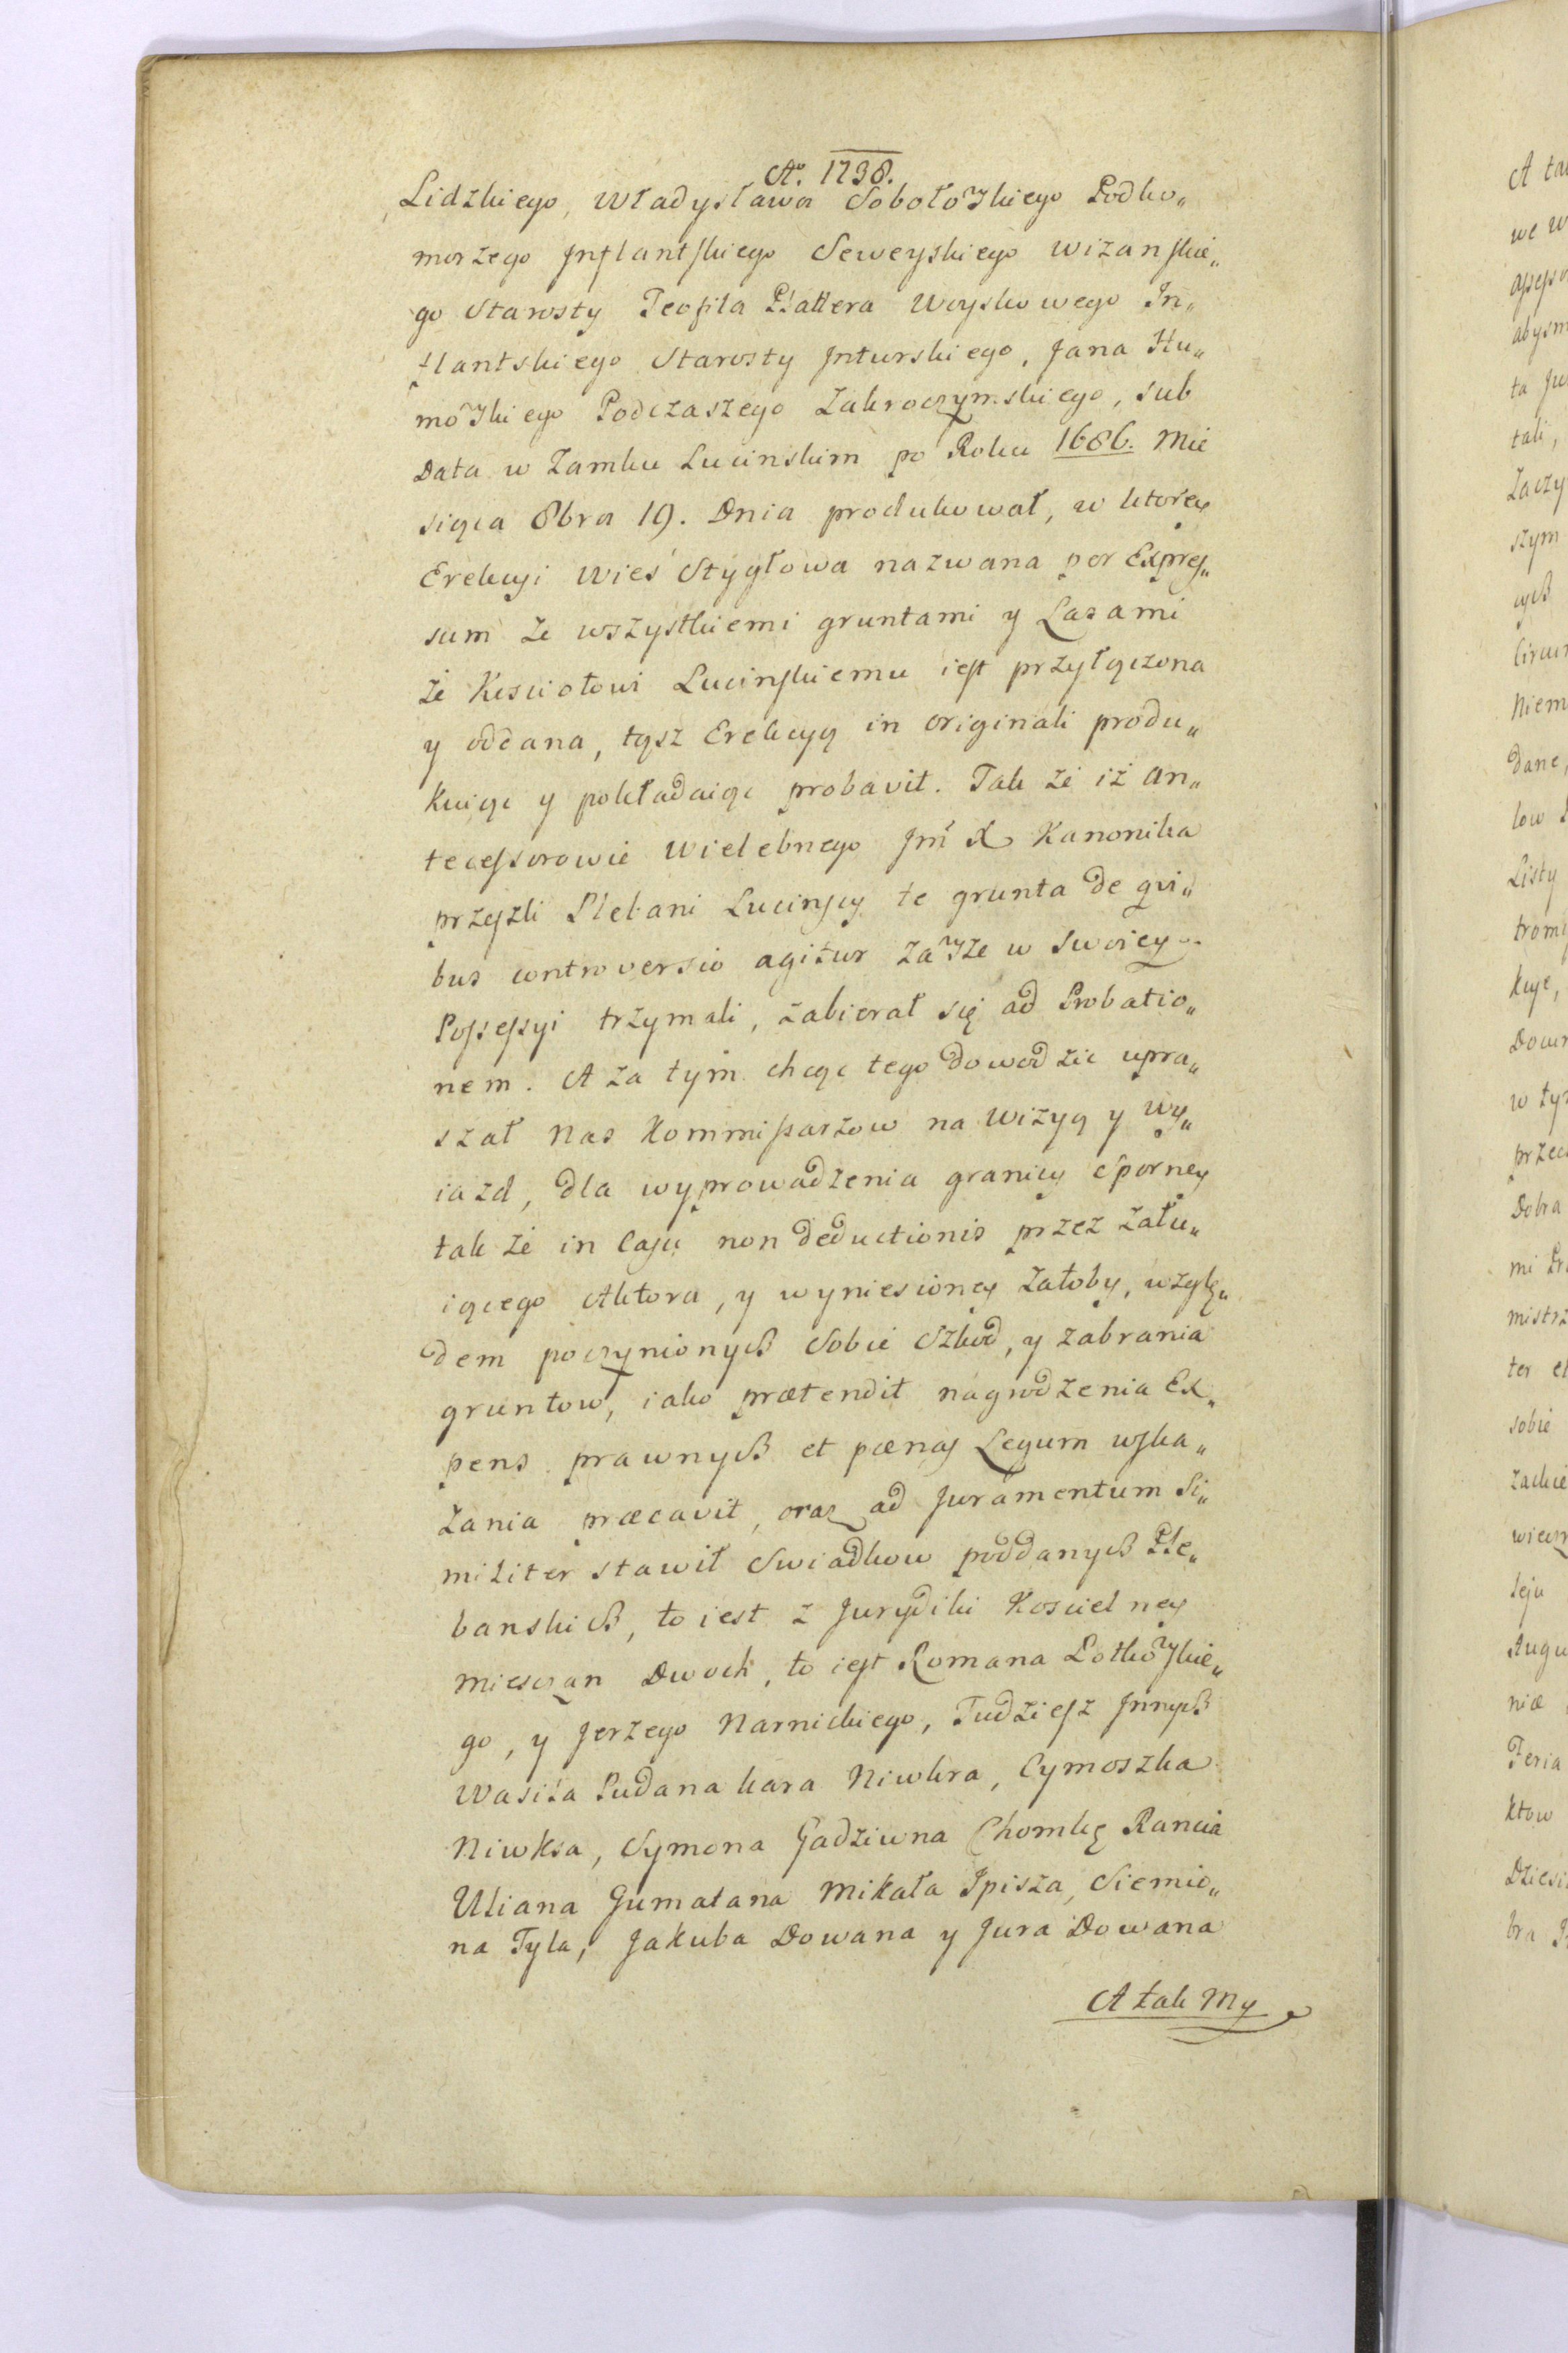 Ao. 1738.
Lidzkiego, Władysława Sobołowskiego Podko„
morzego Inflantskiego Seweyskiego Wizanskie„
go Starosty Teofila Plattera Woyskowego In„
flantskiego Starosty Inturskiego, Jana Hu„
mowskiego Podczaszego Zakroczymskiego, sub
Data w Zamku Lucinskim po Roku 1686. Mie
siąca 8bra 19. Dnia produkował, w ktorey
Erekcyi Wieś Stygłowa nazwana per Expres„
sum ze wszystkiemi gruntami y Lasami
że Kosciołowi Lucinskiemu iest przyłączona
y oddana, tąsz Erekcyą in originali produ„
kuiąc y pokładaiąc probavit. Tak że iż An„
tecessorowie Wielebnego Jmć X Kanonika
przeszli Plebani Lucinscy te grunta de qui„
bus controversio agitur zawsze w swoiey
Possessyi trzymali, zabierał się ad Probatio„
nem. A za tym chcąc tego dowodzic upra„
szał Nas Kommissarzow na Wizyą y wy„
iazd, dla wyprowadzenia granicy Sporney
tak że in Casu non deductionis przez żału„
iącego Aktora, y wyniesioney żałoby, wzglę„
dem poczynionych Sobie Szkod, y zabrania
gruntow, iako prætendit nagrodzenia Ex„
pens prawnych et pænas Legum wska„
zania præcavit, oraz ad Juramentum Si„
militer stawił Swiadkow poddanych Ple„
banskich, to iest z Jurydiki Koscielney
Miesczan Dwoch, to iest Romana Lotkowskie„
go, y Jerzego Narnickiego, Tudziesz Innych
Wasila Pudana kara Niwkra, Cymoszka
Niwksa, Symona Gadziwna Chomkę Rancia
Uliana Gumatana Mikała Ipisza, Siemio„
na Tyla, Jakuba Dowana y Jura Dowana
A tak My